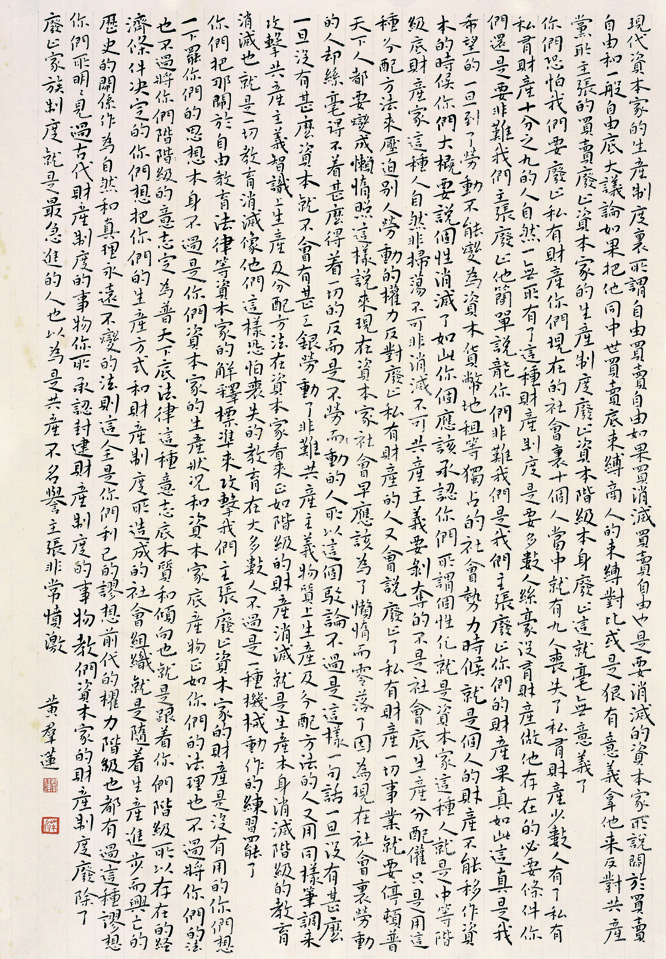 現代資本家的生產制度裏所謂自由買賣自由如果買消滅買賣自由也是要消滅資本家所說關於買賣
自由和一般自由底大議論如果把他同中世買賣底束縛商人的束縛對比或是很有意義拿他來反對共產
黨所主張的買賣廢止資本家的生產制度廢止資本階級本身廢止這就毫無意義了
你們恐怕我們要廢止私有財產你們現在的社會裏十個人當中就有九人喪失了私有財產少數人有了私有
私有財產十分之九的人自然一無所有了這種財產制度是要多數人絲毫沒有財產做他存在的必要條件你
們還是要非難我們主張廢止他簡單說罷你們非難我們是我們主張廢止你們的財產果真如此這真是我
希望的一旦到了勞動不能變為資本貨幣地租等獨占的社會勢力時候就是個人的財產不能移作資
本的時候你們大概要說個性消滅了如此你個應該承認你們所謂個性化就是資本家這種人就是中等階
級底財產家這種人自然非掃蕩不可非消滅不可共產主義要剝奪的不是社會底生產分配權只是用這
種分配方法來壓迫別人勞動的權力反對廢止私有財產的人又會說廢止了私有財產一切事業就要停頓普
天下人都要變成懶惰照這樣說來現在資本家社會早應該為了懶惰而零落了因為現在社會裏勞動
的人却絲毫得不着甚麼得着一切的反而是不勞而動的人所以這個駁論不過是這樣一句話一旦沒有甚麼
一旦沒有甚麼資本就不會有甚工銀勞動了非難共產主義物質上生產及分配方法的人又用同樣筆調來
攻擊共產主義智識上生產及分配方法在資本家看來正如階級的財產消滅就是生產本身消滅階級的教育
消滅也就是一切教育消滅像他們這樣恐怕喪失的教育在大多數人不過是一種機械動作的練習罷了
你們把那關於自由教育法律等資本家的解釋標準來攻擊我們主張廢止資本家的財產是沒有用的你們想
一下罷你們的思想本身不過是你們資本家的生產狀況和資本家底產物正如你們的法理也不過將你們的法
也不過將你們階級的意志定為普天下底法律這種意志底本質和傾向也就是跟着你們階級所以存在的經
濟條件決定的你們想把你們的生產方式和財產制度所造成的社會組織就是隨着生產進步而興亡的
歷史的關係作為自然和真理永遠不變的法則這全是你們利己的謬想前代的權力階級也都有過這種謬想
你們所明明見過古代財產制度的事物你所承認封建財產制度的事物教們資本家的財產制度廢除了
廢止家族制度就是最急進的人也以為是共產不名譽主張非常憤激
黃羣蓮